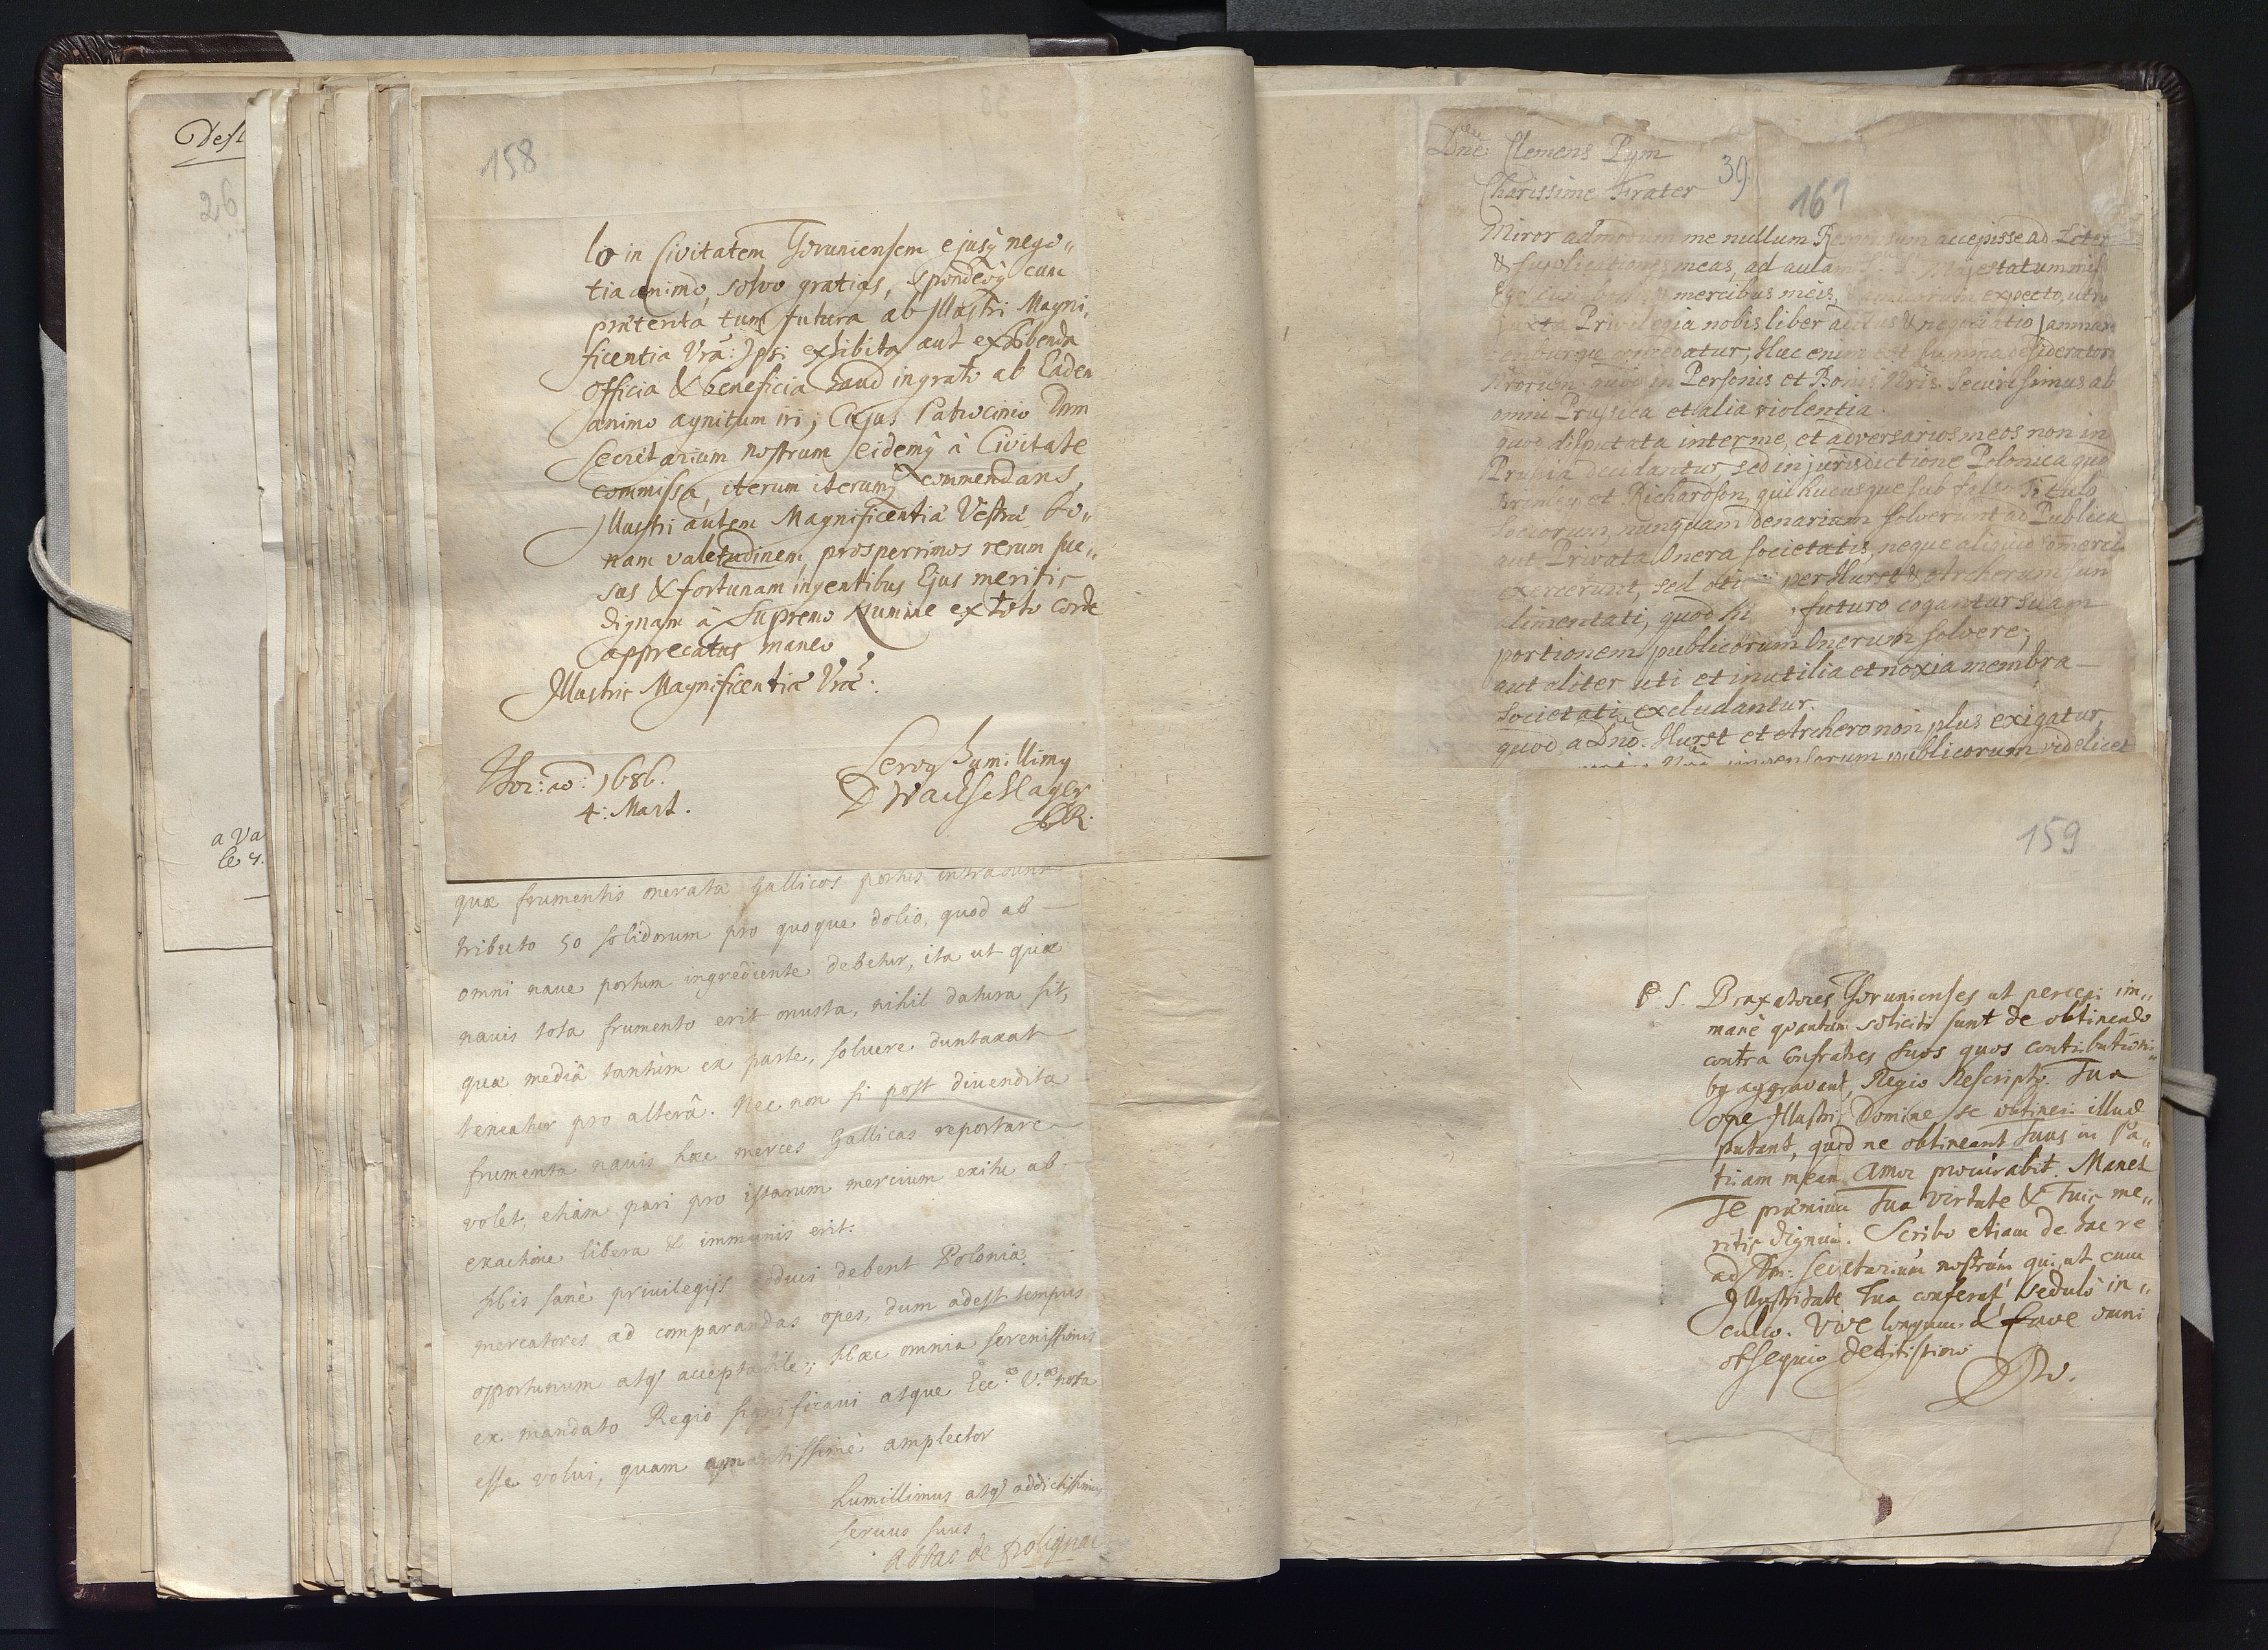 Dest
26
a Va
le s.
158
lo in Civitatem Thoruniensem ejusq nego„
tia animo, solvo gratias, spondeoq cum
præterita tum futura ab Illustri Magni„
ficentia Vrã: Ipsi exhibita aut exhibenda
officia & beneficia haud ingrato ab Eadem
animo agnitum iri; Cujus Patrocinio Dnm
Secretarium nostrum eidemq à Civitate
commissa, iterum iterumq commendans,
Illustri autem Magnificentiæ Vestræ bo„
nam valetudinem, prosperrimos rerum suc„
sus & fortunam ingentibus Ejus meritis
dignam à Supremo Numine ex toto corde
apprecatus maneo
Illustris Magnificentiæ Vræ:
Thor: 1686.
4: Mart.
Servq humillimq
D Wachschlager
quæ frumentis onerata Gallicos portus intrabunt
tributo 50 solidorum pro quoque dolio, quod ab
omni naue portum ingrediente debetur, ita ut quæ
nauis tota frumento erit onusta, nihil datura sit,
quæ mediâ tantùm ex parte, soluere duntaxat
teneatur pro alterâ. Nec non si post diuendita
frumenta nauis hæc merces Gallicas reportare
volet, etiam pari pro istarum mercium exitu ab
exactione libera & immunis erit.
His sanè priuilegijs adduci debent Poloniæ
mercatores ad comparandas opes, dum adest tempus
opportunum atq acceptabile; Hæc omnia serenissimis
ex mandato Regio significaui atque Ecc.æ V.æ nota
esse volui, quam amantissimè amplector
humillimus atq addictissimus
seruus suus
Abbas de Polignac
Dne Clemens Pym
39.
Charissime Frater
167
Miror admodum me nullum Responsum accepisse ad Liter
& supplicationes meas, ad aulam Majestatum
mercibus meis, expecto, ut
juxta Privilegia nobis liber aditus & negociatio
concedatur; Hæc enim est summa desideratorum
quod in Personis et Bonis Nris. Securissimus ab
omni Prussica et alia violentia.
quod disputata inter me, et adversarios meos non in
Prussia decidantur, sed in jurisdictione Polonica quod
et Richardson, qui hucusque sub falso Titulo
Sociorum, nunquam denarium solverunt ad Publica
aut Privata Onera Societatis, neque aliquid
exercerunt, sed per Hurst & Archerum sun
alimentati, quod futuro cogantur suam
portionem publicorum Onerum solvere;
aut aliter uti et inutilia et noxia membra
Societatis excludantur.
quod a Dno. Hurst et Archero non plus exigatur,
publicorum videlicet
159
P S. Braxatores Thorunienses ut percepi im„
manè quantum soliciti sunt de obtinendo
contra Confratres suos quos contributioni„
bq aggravant, Regio Rescripto. Tua
ope Illustris Domine se obtineri illud
putant, quod ne obtineant Tuus in Pa„
triam meam Amor procurabit. Manet
Te præmium Tua virtute & Tuis me„
ritis dignum. Scribo etiam de hac re
ad Dm: Secretarium nostrum qui ut cum
Illustritate Tua conferat sedulò in„
culco. Vive longum & fave omni
obsequio deditissimo
DW.